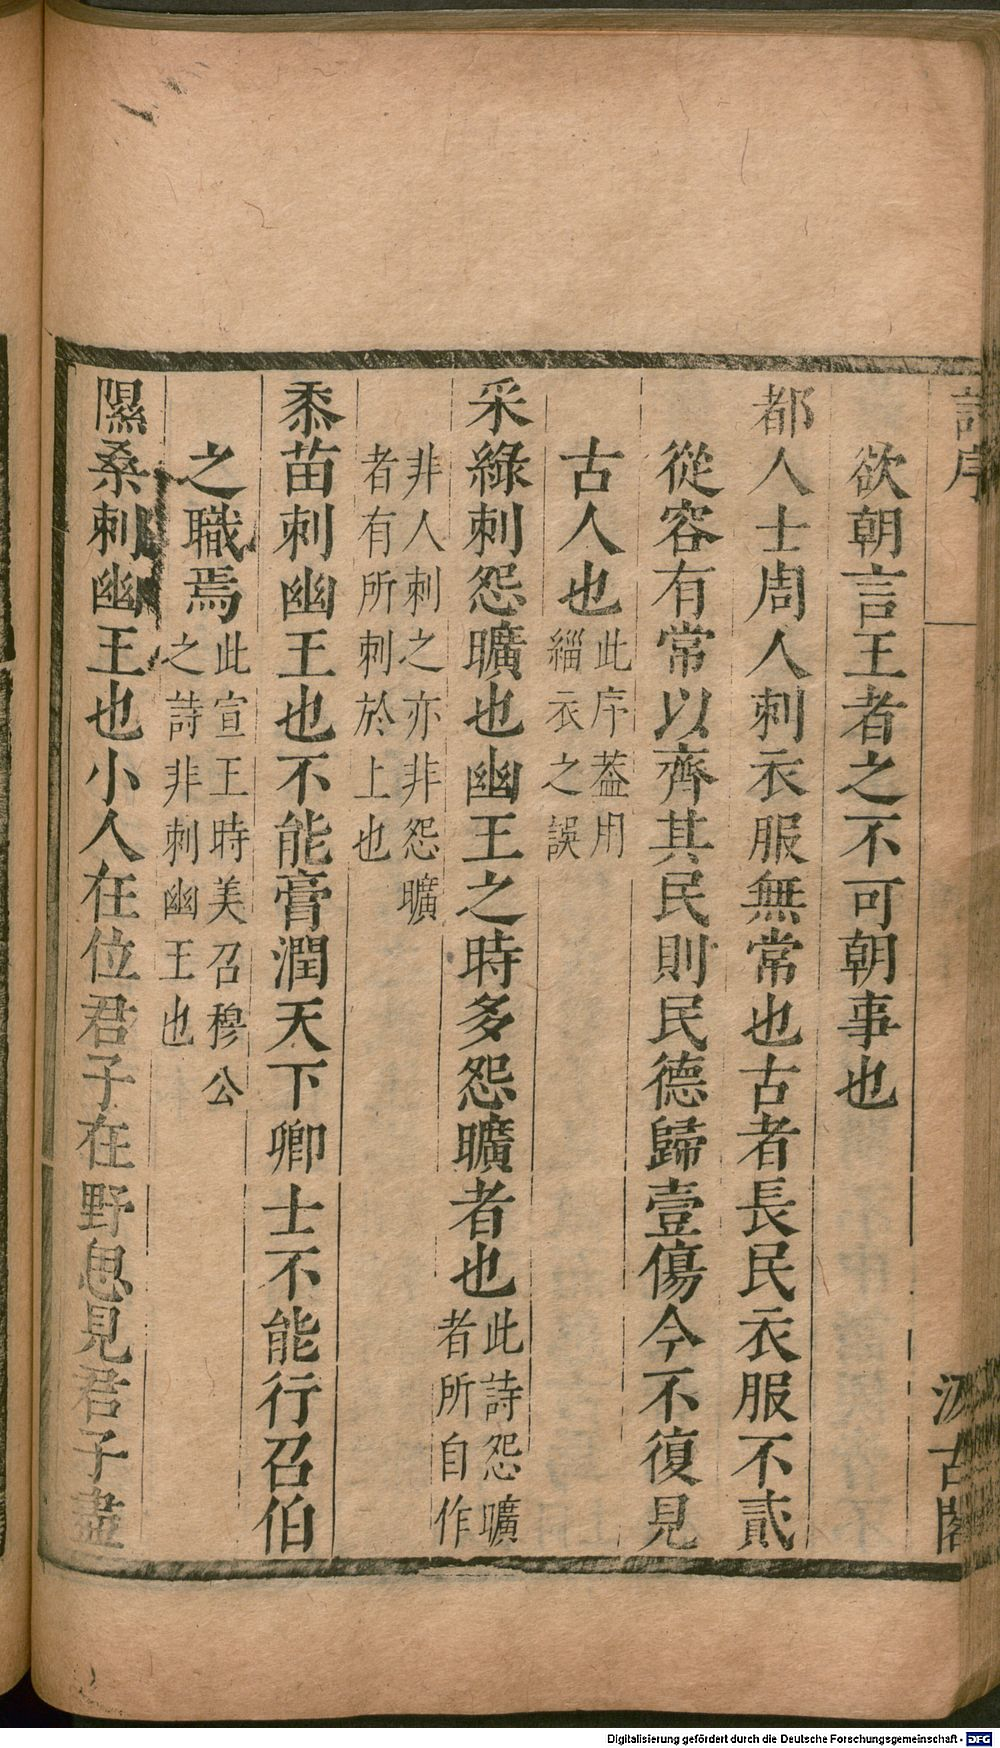 詩序
汲古閣
欲朝言王者之不可朝事也
都人士周人刺衣服無常也古者長民衣服不貳
從容有常以齊其民則民德歸壹傷今不復見
古人也此序葢用
緇衣之誤
采綠刺怨曠也幽王之時多怨曠者也此詩怨曠
者所自作
非人刺之亦非怨曠
者有所刺於上也
黍苗刺幽王也不能膏潤天下卿士不能行召伯
之職焉此宣王時美召穆公
之詩非刺幽王也
隰桑刺幽王也小人在位君子在野思見君子盡
Digitalisierung gefördert durch die Deutsche Forschungsgemeinschaft - DFG